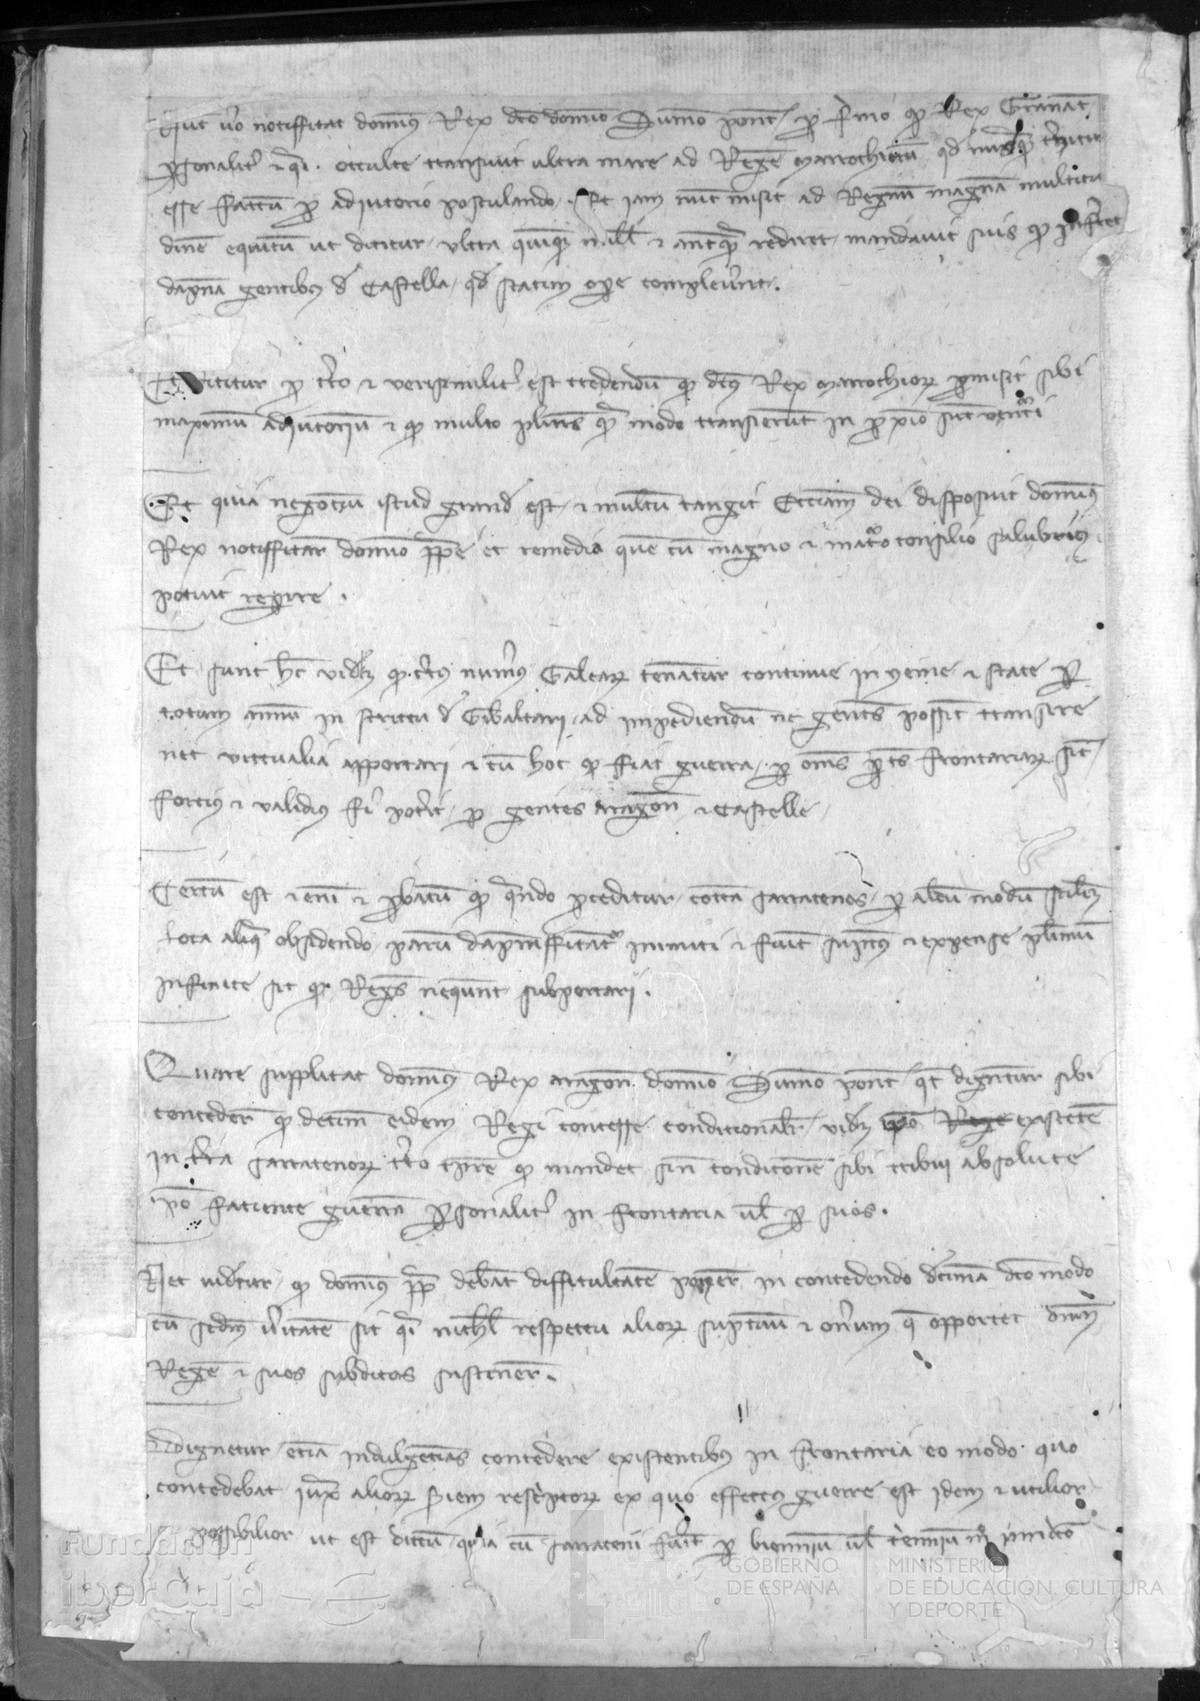 Nunc vero notifficat dominus Rex dco domino Summo pont. p fmo qp Rex Granat
psonalit et qi occulte transivit ultra mare ad Regem Marrochiorum qd nusqz
esse factum p adjutorio postulando. Et jam nunc misit ad Regnum magnam multitu
dinem equitum ut dicitur ultra quinqz mill et antqz rediret mandavit suis qp inferret
dapna gentibus de Castella qd statim ope compleverunt.
Et dicitur p certo et verisimilit est credendum qp dcus Rex Marrochiorum pmisit sibi
maximum adjutorium et qp multo plures qz modo transierunt in pximo sunt
Et quia negocium istud grande est et multum tangit Ecciam dei disposuit dominus
Rex notifficar domino ppe et remedia que cum magno et maturo consilio salubrius
potuit repire.
Et sunt hec videlz qp certus numerus Galearum teneatur continue in yeme et state p
totum annum in strictu de Gibaltari ad impediendum ne gentes possint transire
nec victualia apportari et cum hoc qp fiat guerra p omes ptes frontariarum sic
forcius et validius fi poterit p gentes aragon et Castelle
Certum est et eni et pbatum qp quando pceditur contra sarracenos p alium modum scilz
loca aliqz obsidendo parum dapnifficant inimici et fiunt sumptus et expense plimum
infinite sic qp Reges nequeunt subportari.
Quare supplicat dominus Rex aragon domino Summo pont qt dignetur sibi
conceder qp decima eidem Regi concesse condicionalr videlz ipo Rege existente
in terra sarracenorum certo tpre qp mandet sine condicione sibi tribui absolute
ipo faciente guerram psonalit in frontaria vl p suos.
Nec videtur qp dominus pp debeat difficultatem poner in concedendo decimam dco modo
cum scdm veritatem sit qi nichil respectu aliorum sumptuum et onerum q opportet dnm
Regem et suos subditos sustiner.
Dignetur etiam indulgencias concedere existentibus in frontaria eo modo quo
concedebat aliorum ex quo effectus guerre est idem et utilior
possibilior ut est dictum quia cum sarraceni p biennium vl triennium
Fundación
iberCaja
GOBIERNO
DE ESPAÑA
MINISTERIO
DE EDUCACIÓN, CULTURA
Y DEPORTE